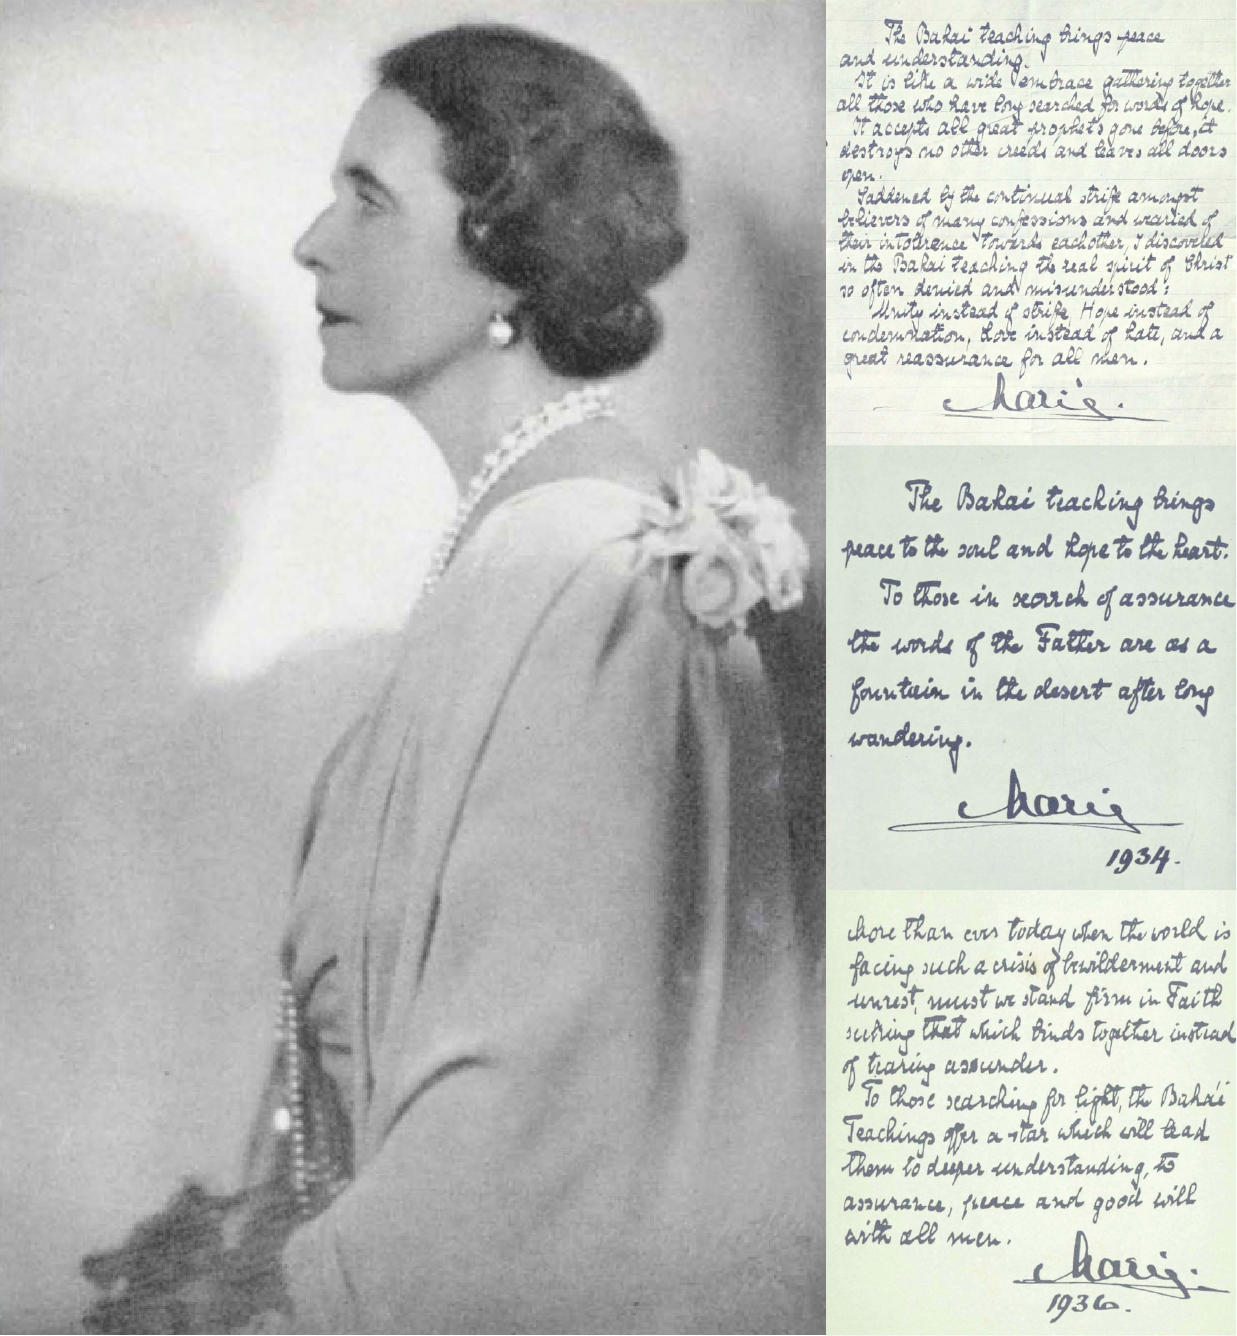 The Bahai teaching brings peace
and understanding.
It is like a wide embrace gathering together
all those who have long searched for words of hope.
It accepts all great prophets gone before, it
destroys no other creeds and leaves all doors
open.
Saddened by the continual strife amongst
believers of many confessions and wearied of
their intolerance towards eachother, I discovered
in the Bahai teaching the real spirit of Christ
so often denied and misunderstood:
Unity instead of strife, Hope instead of
condemnation, Love instead of hate, and a
great reassurance for all men.
Marie.
The Bahai teaching brings
peace to the soul and hope to the heart.
To those in search of assurance
the words of the Father are as a
fountain in the desert after long
wandering.
Marie
1934.
More than ever today when the world is
facing such a crisis of bewilderment and
unrest, must we stand firm in Faith
seeking that which binds together instead
of tearing assunder.
To those searching for light, the Bahá'i
Teachings offer a star which will lead
them to deeper understanding, to
assurance, peace and good will
with all men.
Marie.
1936.